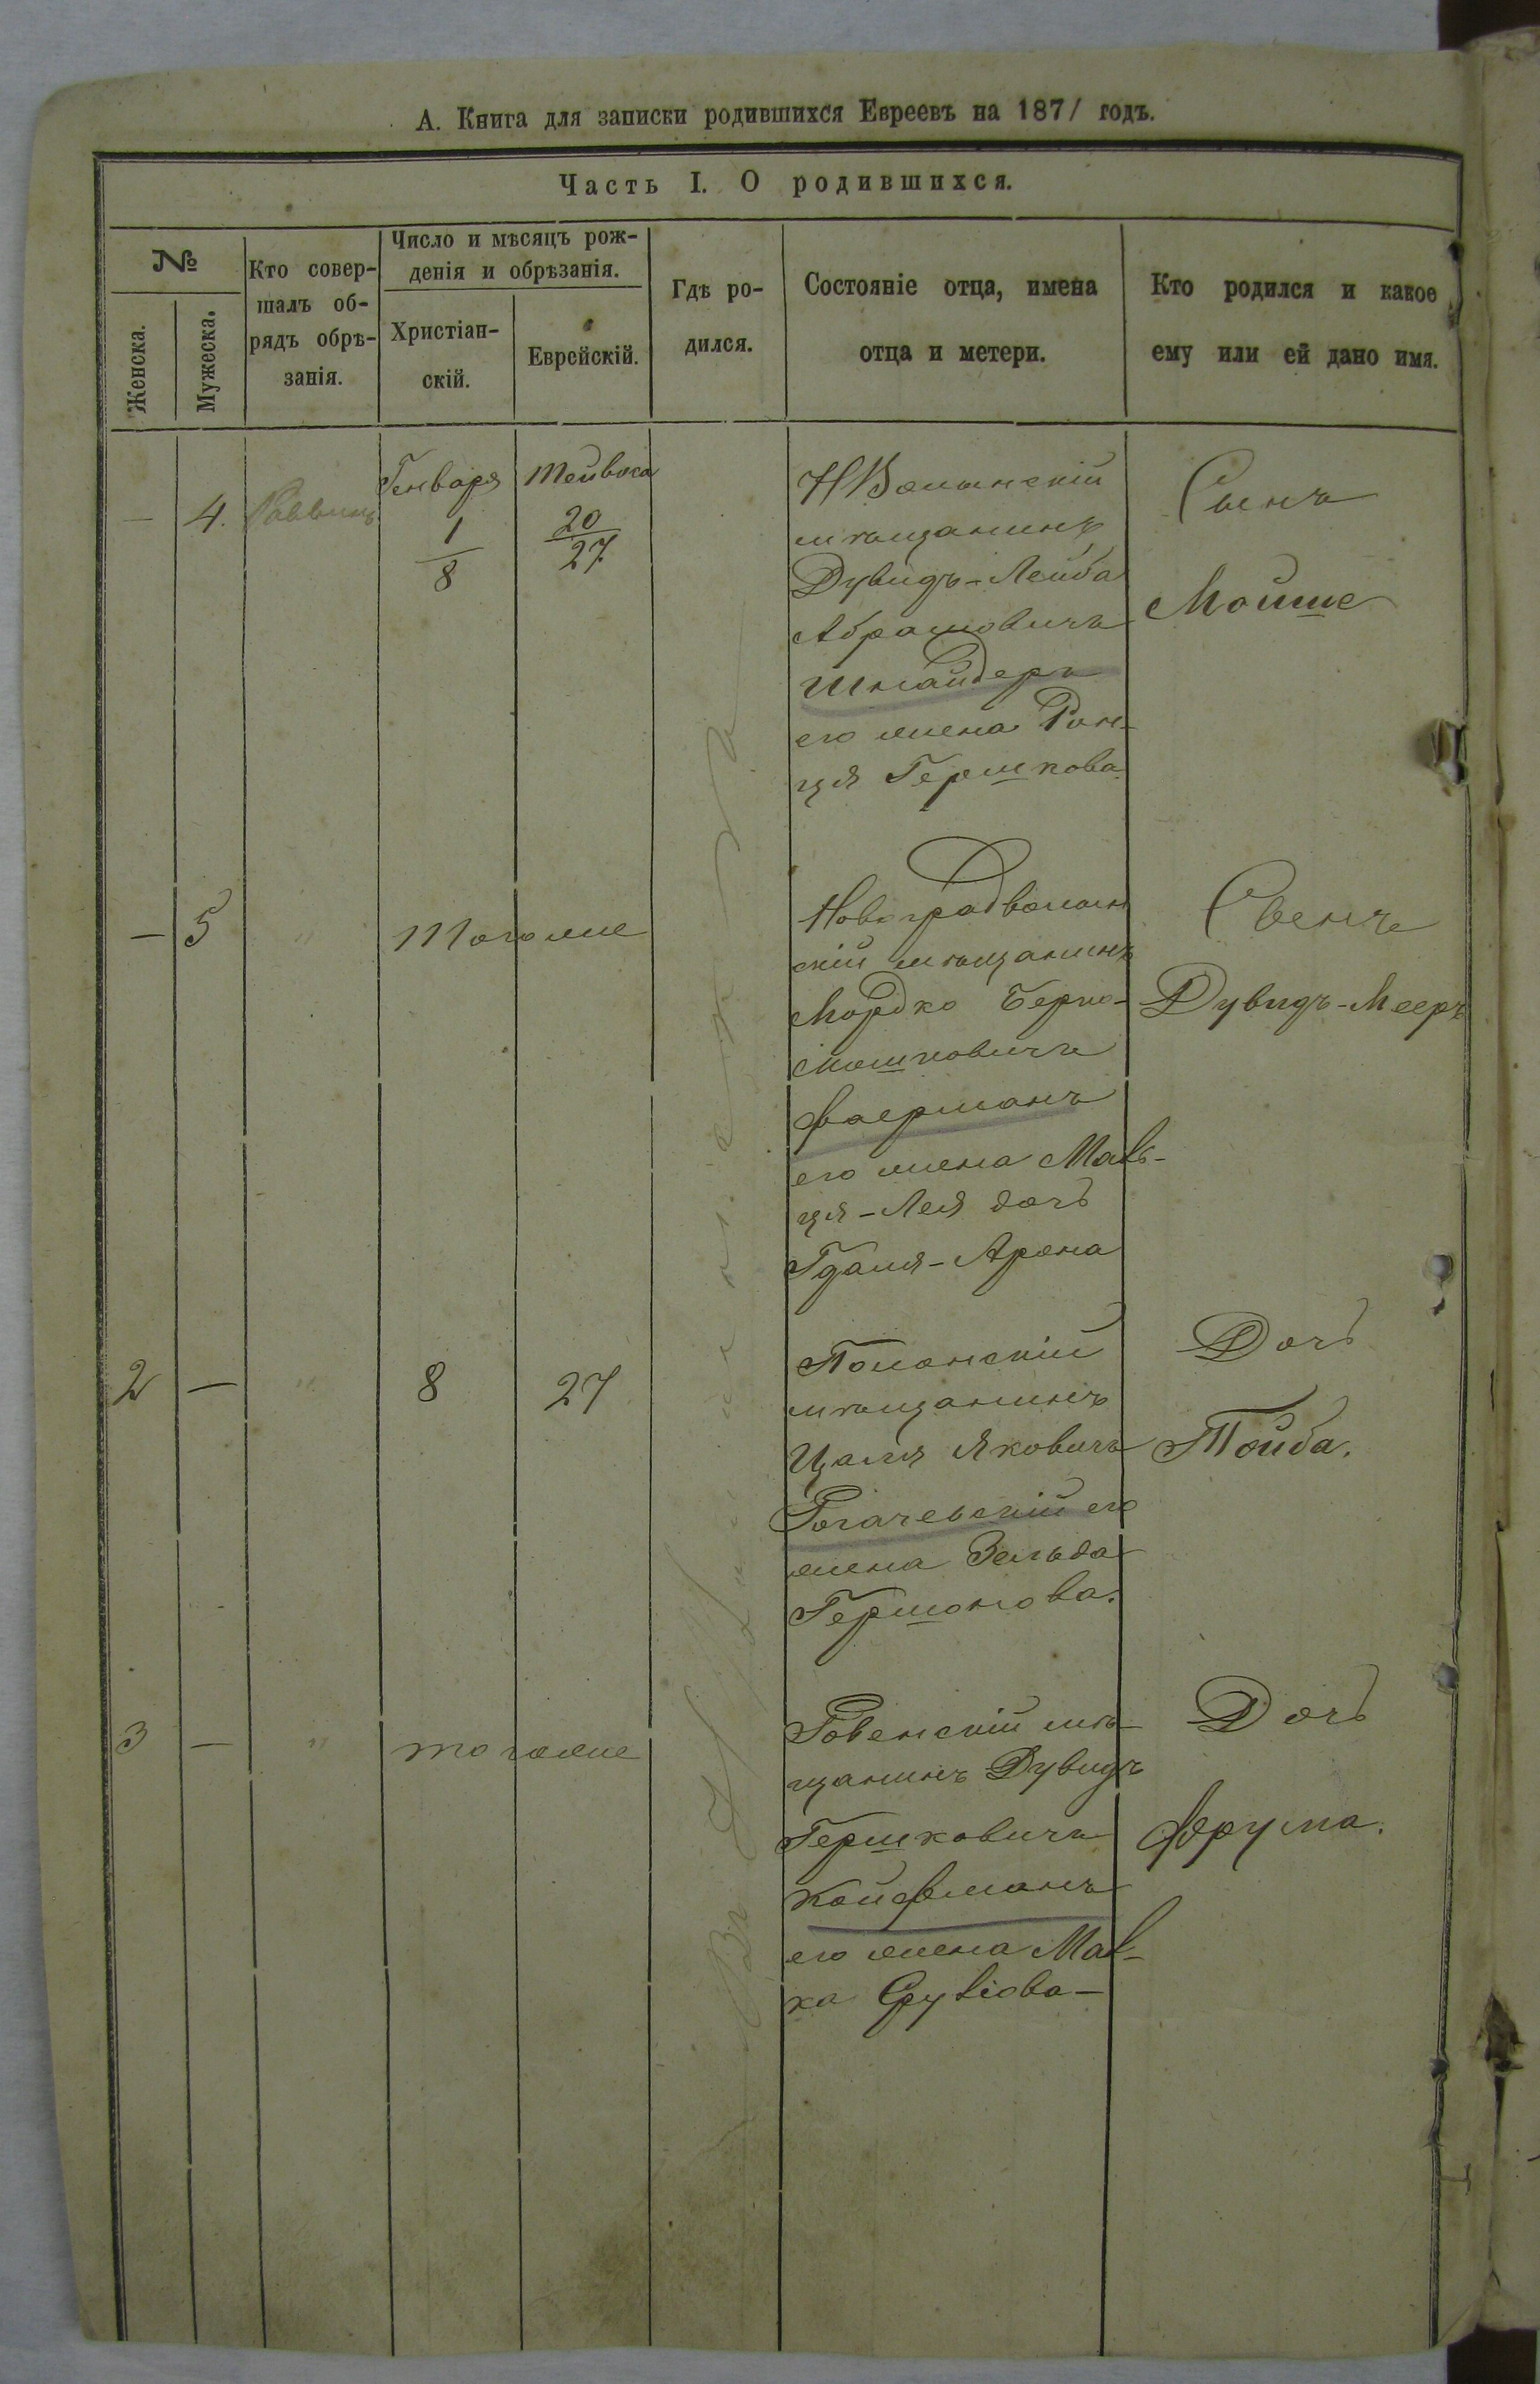 А. Книга для записки родившихся Евреевъ на 1871 годъ.
Часть I. О родившихся.
№
Женска.
Мужеска.
Кто совер-
шалъ об-
рядъ обрѣ-
занія.
Число и мѣсяцъ рож-
денія и обрѣзанія.
Христіан-
скій.
Еврейскій.
Гдѣ ро-
дился.
Состояніе отца, имена
отца и метери.
Кто родился и какое
ему или ей дано имя.
— 4. Раввинъ
Генваря
1
8
Тейвеса
20
27
НВолынскій
мѣщанинъ
Дувидъ-Лейба
Абрамовичъ
Шнайдеръ
его жена Рон-
ця Гершкова
Сынъ
Мойше
— 5 " Тогоже
Новоградволын
скій мѣщанинъ
Мордко Берко-
Мошковичъ
Фаерманъ
его жена Маль-
ця-Лея дочь
Гдаля-Арона
Сынъ
Дувидъ-Мееръ
2 — " 8 27
Полонскій
мѣщанинъ
Цаля Яковичъ
Рогачевскій его
жена Зельда
Гершонова.
Дочь
Тойба.
3 — " тогоже
Ровенскій мѣ-
щанинъ Дувидъ
Гершковичъ
Койфманъ
его жена Мал-
ка Сруліова—
Дочь
Фрума.